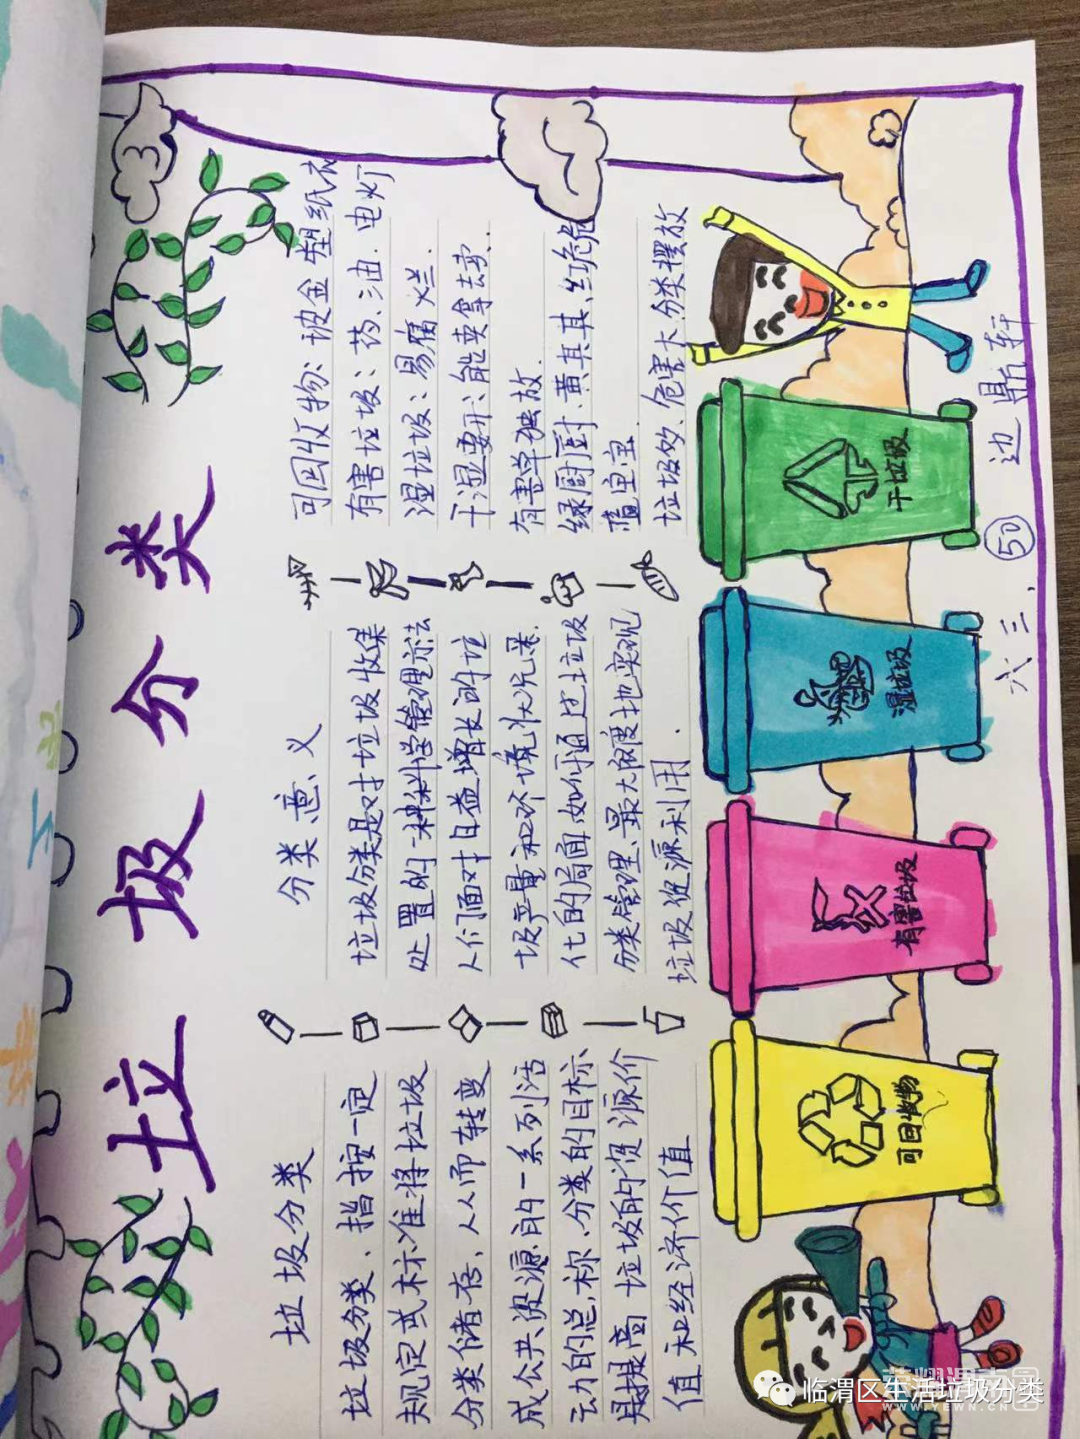 垃圾分类
垃圾分类
垃圾分类、指按一定
规定或标准将垃圾
分类储存、从而转变
成公共资源的一系列活
动的总称、分类的目标
是提高垃圾的资源价
值和经济价值
分类意义
垃圾分类是对垃圾收集
处置的一种科学管理办法
人们面对日益增长的垃
圾产量和环境状况恶
化的局面,如何通过垃圾
分类管理、最大限度地实现
垃圾资源利用.
可回收物:玻金塑纸衣
有害垃圾:药、油、电灯
湿垃圾:易腐烂.
干湿要开:能卖拿去卖.
有害单独放.
绿厨厨、黄其其、红危危
蓝宝宝.
垃圾妙、危害大、分类摆放
可回收物
有害垃圾
湿垃圾
干垃圾
六三、50 边鼎轩
临渭区生活垃圾分类
WWW.YEWN.CN